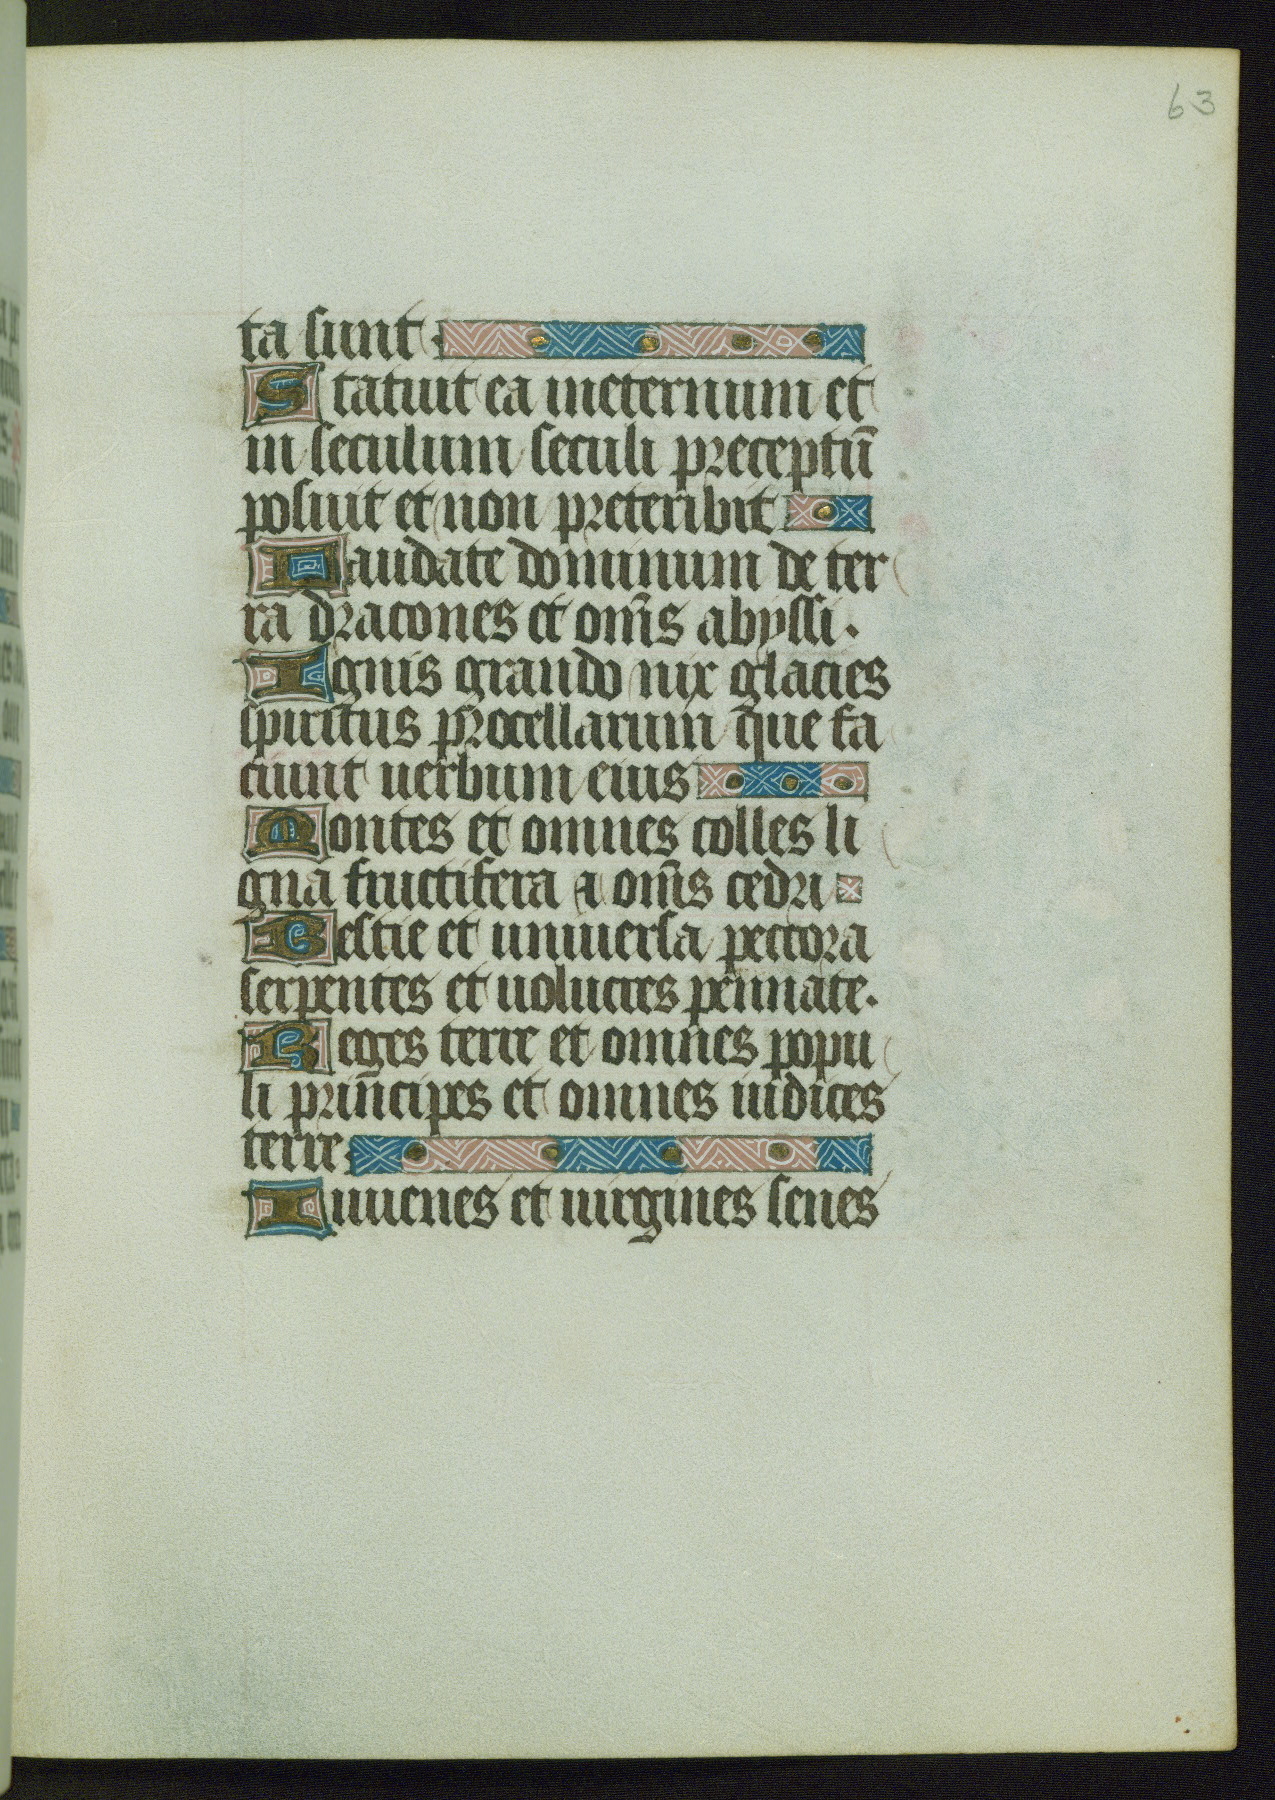 63
ta sunt
Statuit ea ineternum et
in seculum seculi preceptū
posuit et non preteribit
Laudate dominum de ter
ra dracones et om̄s abyssi.
Ignis grando nix glacies
spiritus procellarum que fa
ciunt uerbum eius
Montes et omnes colles li
gna fructifera ⁊ om̄s cedri
Bestie et uniuersa pectora
serpentes et uolucres pennate.
Reges terre et omnes popu
li principes et omnes iudices
terre
Iuuenes et uirgines senes